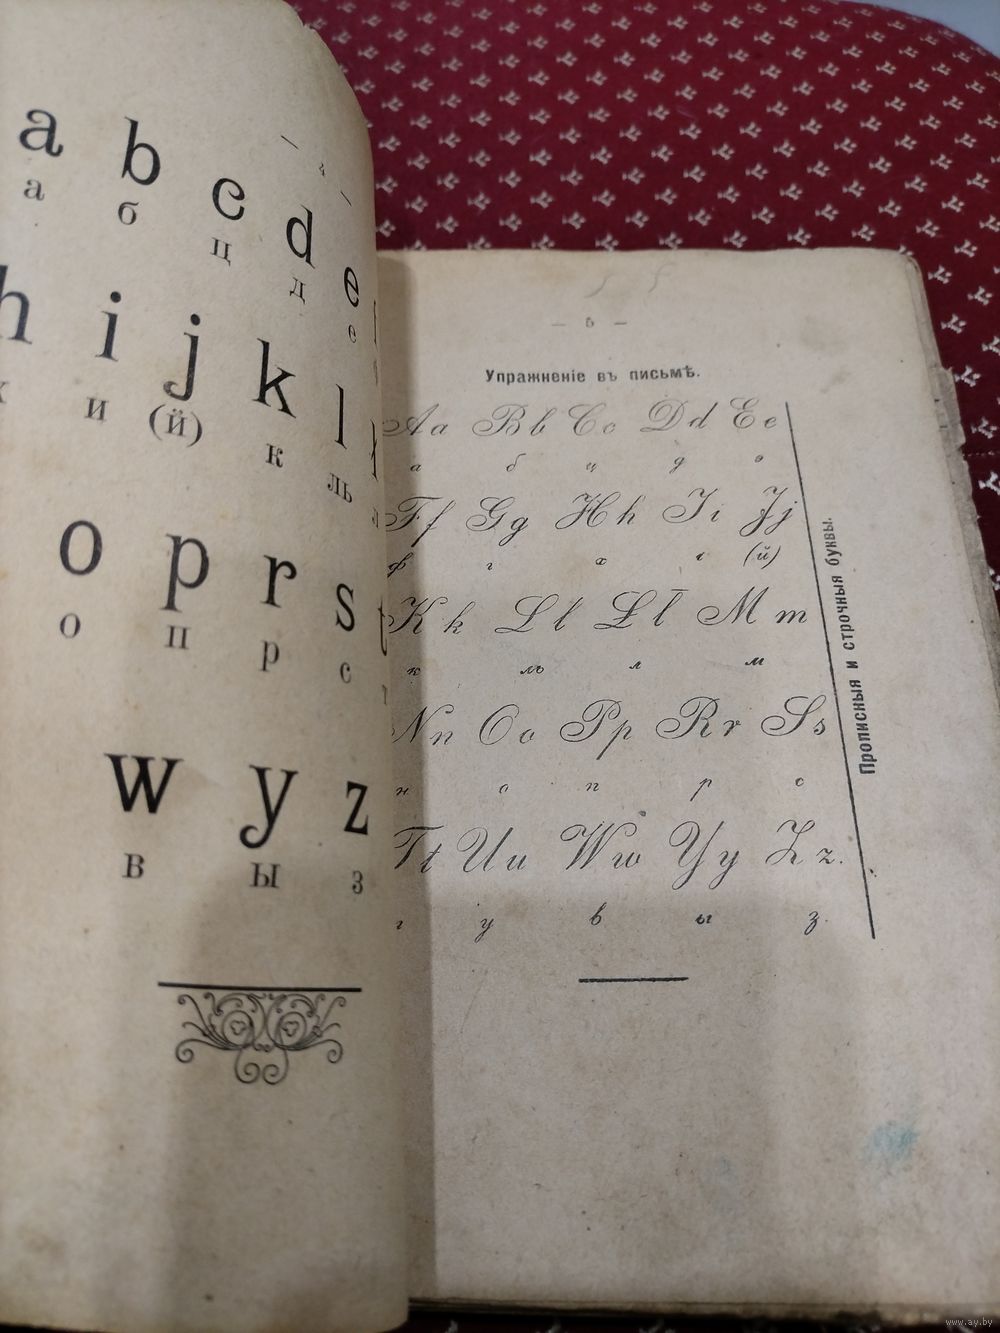 — 4 —
a b c d e
а б ц д е
h i j k l ł
х и (й) к ль л
o p r s t
о п р с т
w y z
в ы з
— 5 —
Упражненіе въ письмѣ.
Aa Bb Cc Dd Ee
а б ц д э
Ff Gg Hh Ii Jj
ф г х і (й)
Kk Ll Łł Mm
к ль л м
Nn Oo Pp Rr Ss
н о п р с
Tt Uu Ww Yy Zz.
т у в ы з.
Прописныя и строчныя буквы.
www.ay.by